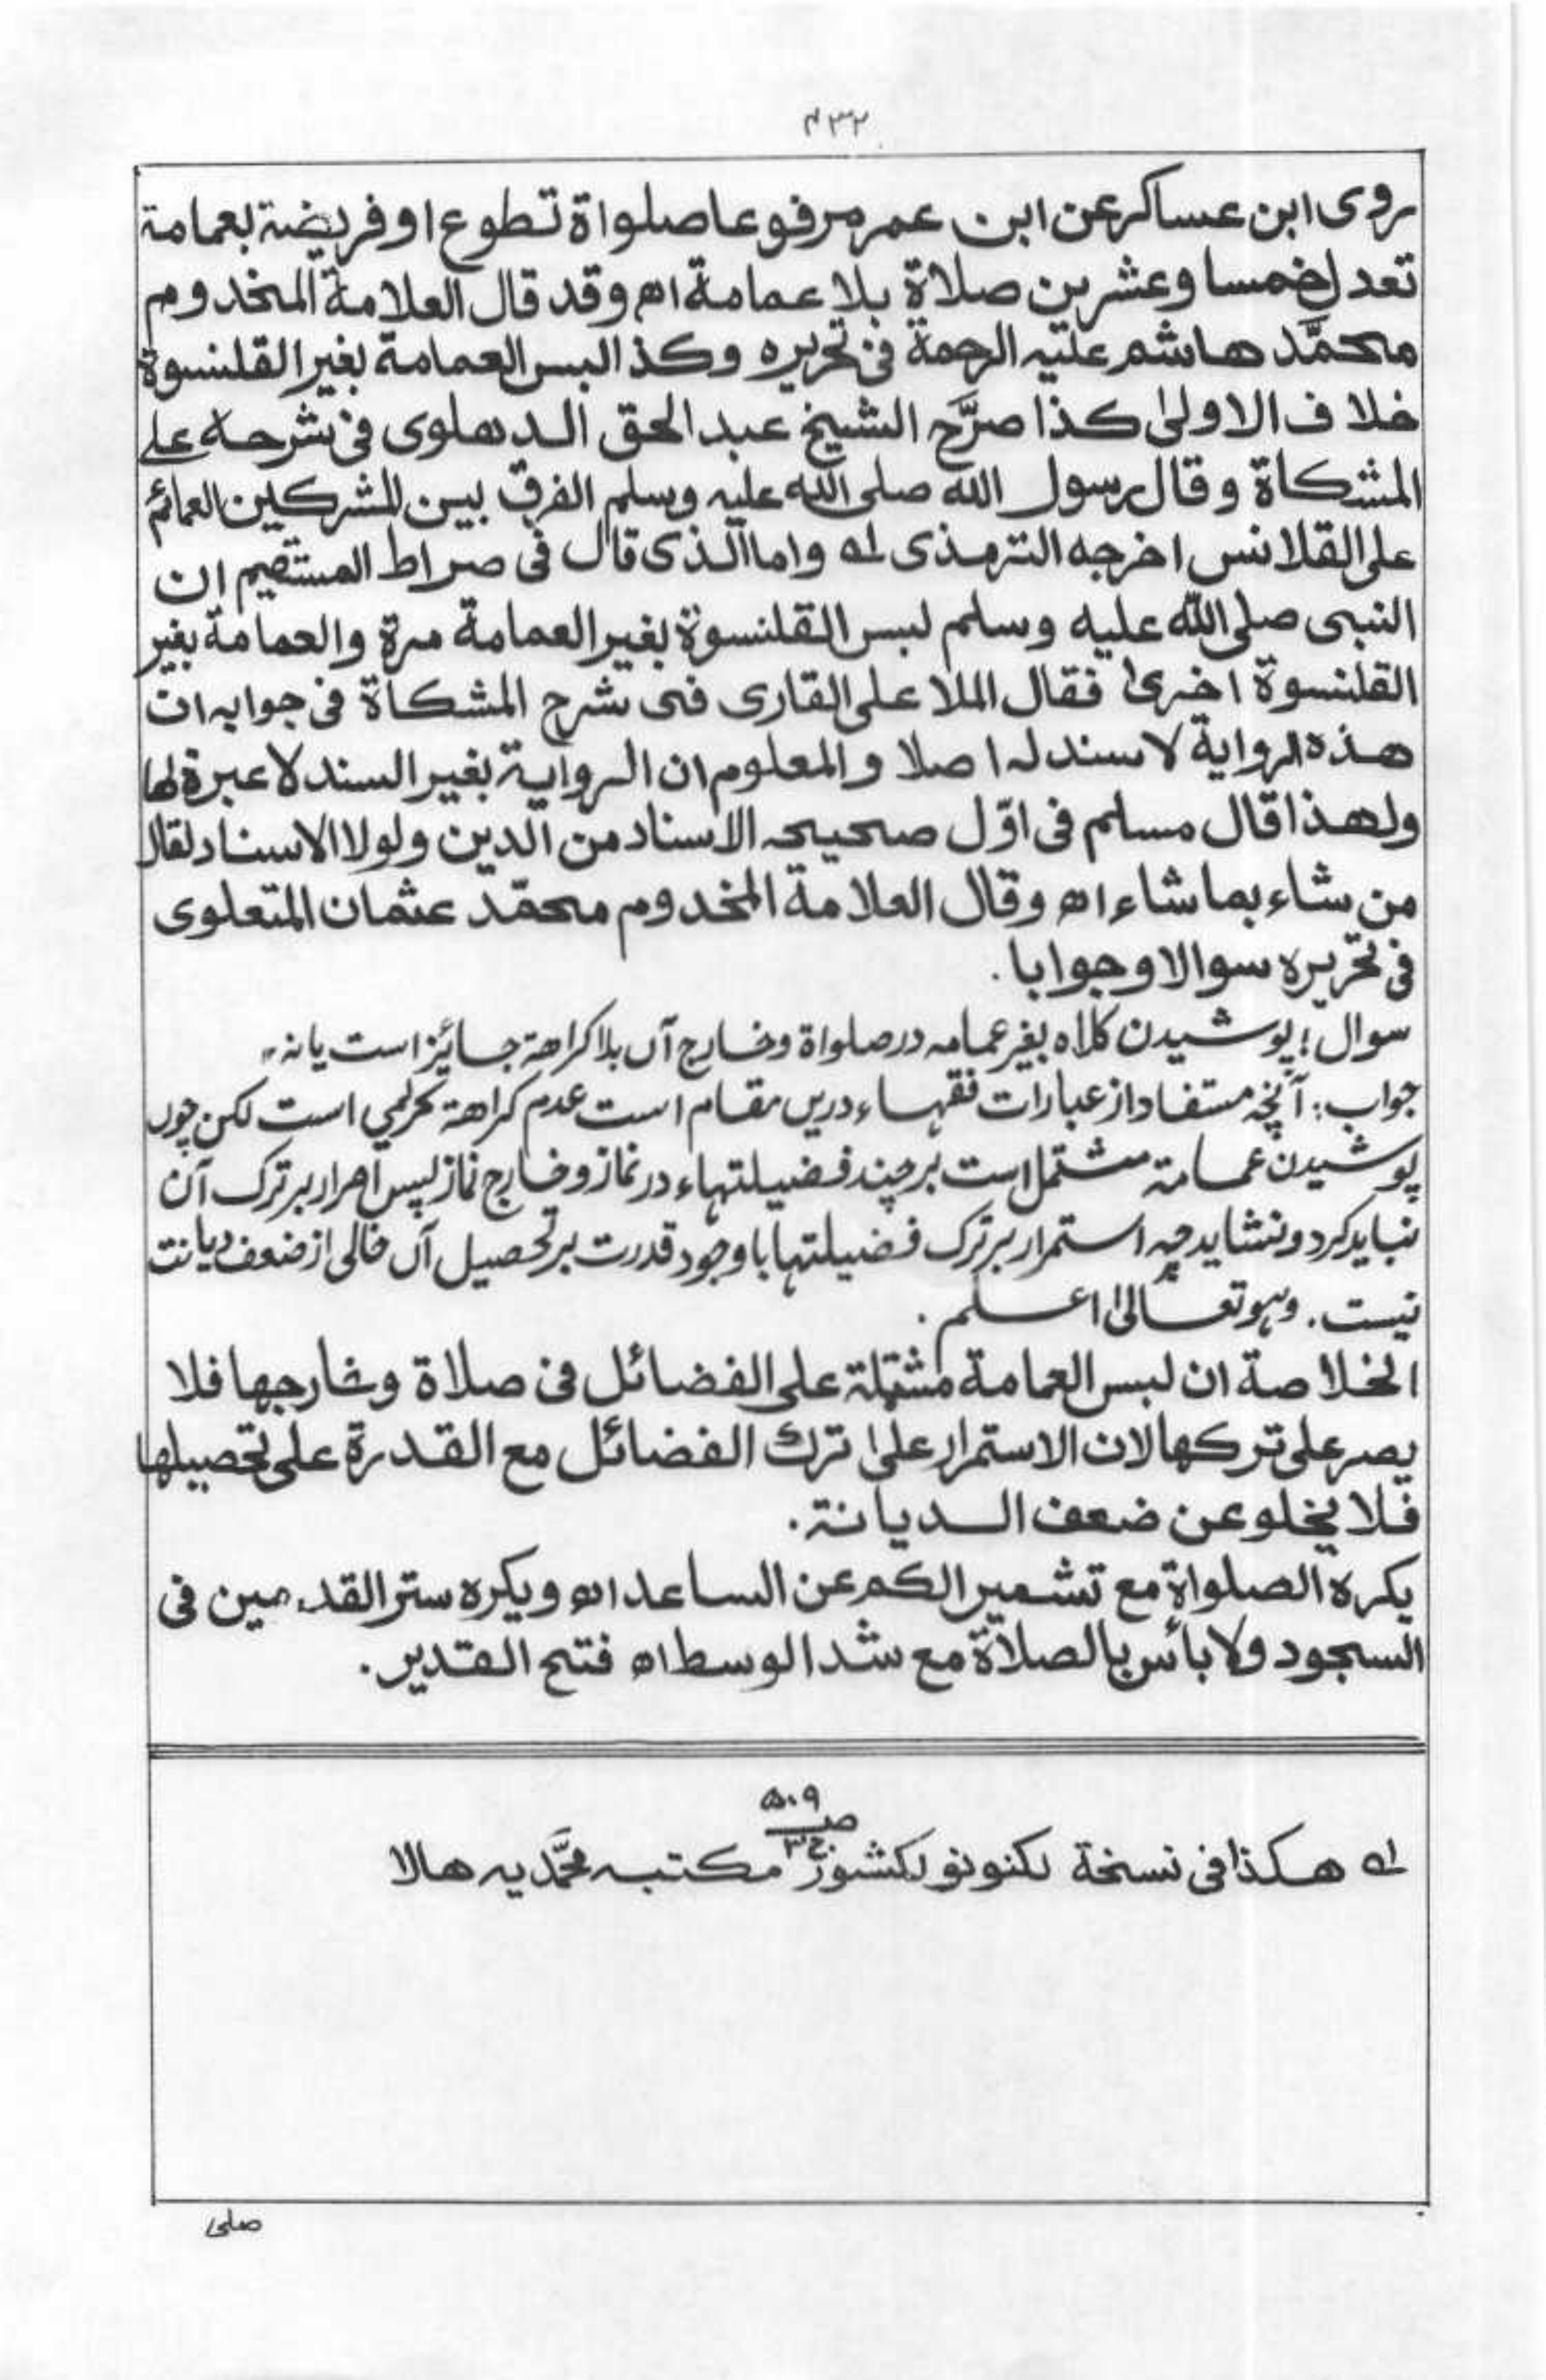 ۴۳۲
روی ابن عساکر عن ابن عمر مرفوعا صلواة تطوع او فریضة بعمامة
تعدل خمسا وعشرین صلاة بلا عمامة اه وقد قال العلامة المخدوم
محمّد هاشم علیه الرحمة فی تحریره وکذا لبس العمامة بغیر القلنسوة
خلاف الاولیٰ کذا صرَّح الشیخ عبد الحق الدهلوی فی شرحه علی
المشکاة وقال رسول الله صلی الله علیه وسلم الفرق بین المشرکین العمائم
علی القلانس اخرجه الترمذی لہ واما الذی قال فی صراط المستقیم ان
النبی صلی اللّٰه علیه وسلم لبس القلنسوة بغیر العمامة مرة والعمامة بغیر
القلنسوة اخریٰ فقال الملا علی القاری فی شرح المشکاة فی جوابه ان
هذه الروایة لا سند له اصلا والمعلوم ان الروایة بغیر السند لا عبرة لها
ولهذا قال مسلم فی اوّل صحیحه الاسناد من الدین ولولا الاسناد لقال
من شاء بما شاء اه وقال العلامة المخدوم محمّد عثمان المتعلوی
فی تحریره سوالا وجوابا۔
سوال؛ پوشیدن کلاہ بغیر عمامہ در صلواة وخارج آں بلا کراهة جایز است یا نہ،
جواب: آنچہ مستفاد از عبارات فقہاء دریں مقام است عدم کراهة تحریمی است لکن چوں
پوشیدن عمامة مشتمل است بر چند فضیلتہاء در نماز وخارج نماز پس اصرار بر ترک آن
نباید کرد ونشاید چہ استمرار بر ترک فضیلتہا باوجود قدرت بر تحصیل آں خالی از ضعف دیانت
نیست۔ وہو تعالیٰ اعلم۔
الخلاصة ان لبس العمامة مشتملة علی الفضائل فی صلاة وخارجها فلا
یصر علی ترکها لان الاستمرار علیٰ ترک الفضائل مع القدرة علی تحصیلها
فلا یخلو عن ضعف الدیانة۔
یکره الصلواة مع تشمیر الکم عن الساعد اه ویکره ستر القدمین فی
السجود ولا بأس بالصلاة مع شد الوسط اه فتح القدیر۔
لہ هکذا فی نسخة لکنو نولکشور صـ ۵۰۹ ج ۳ مکتبہ محمّدیہ هالا
صلی